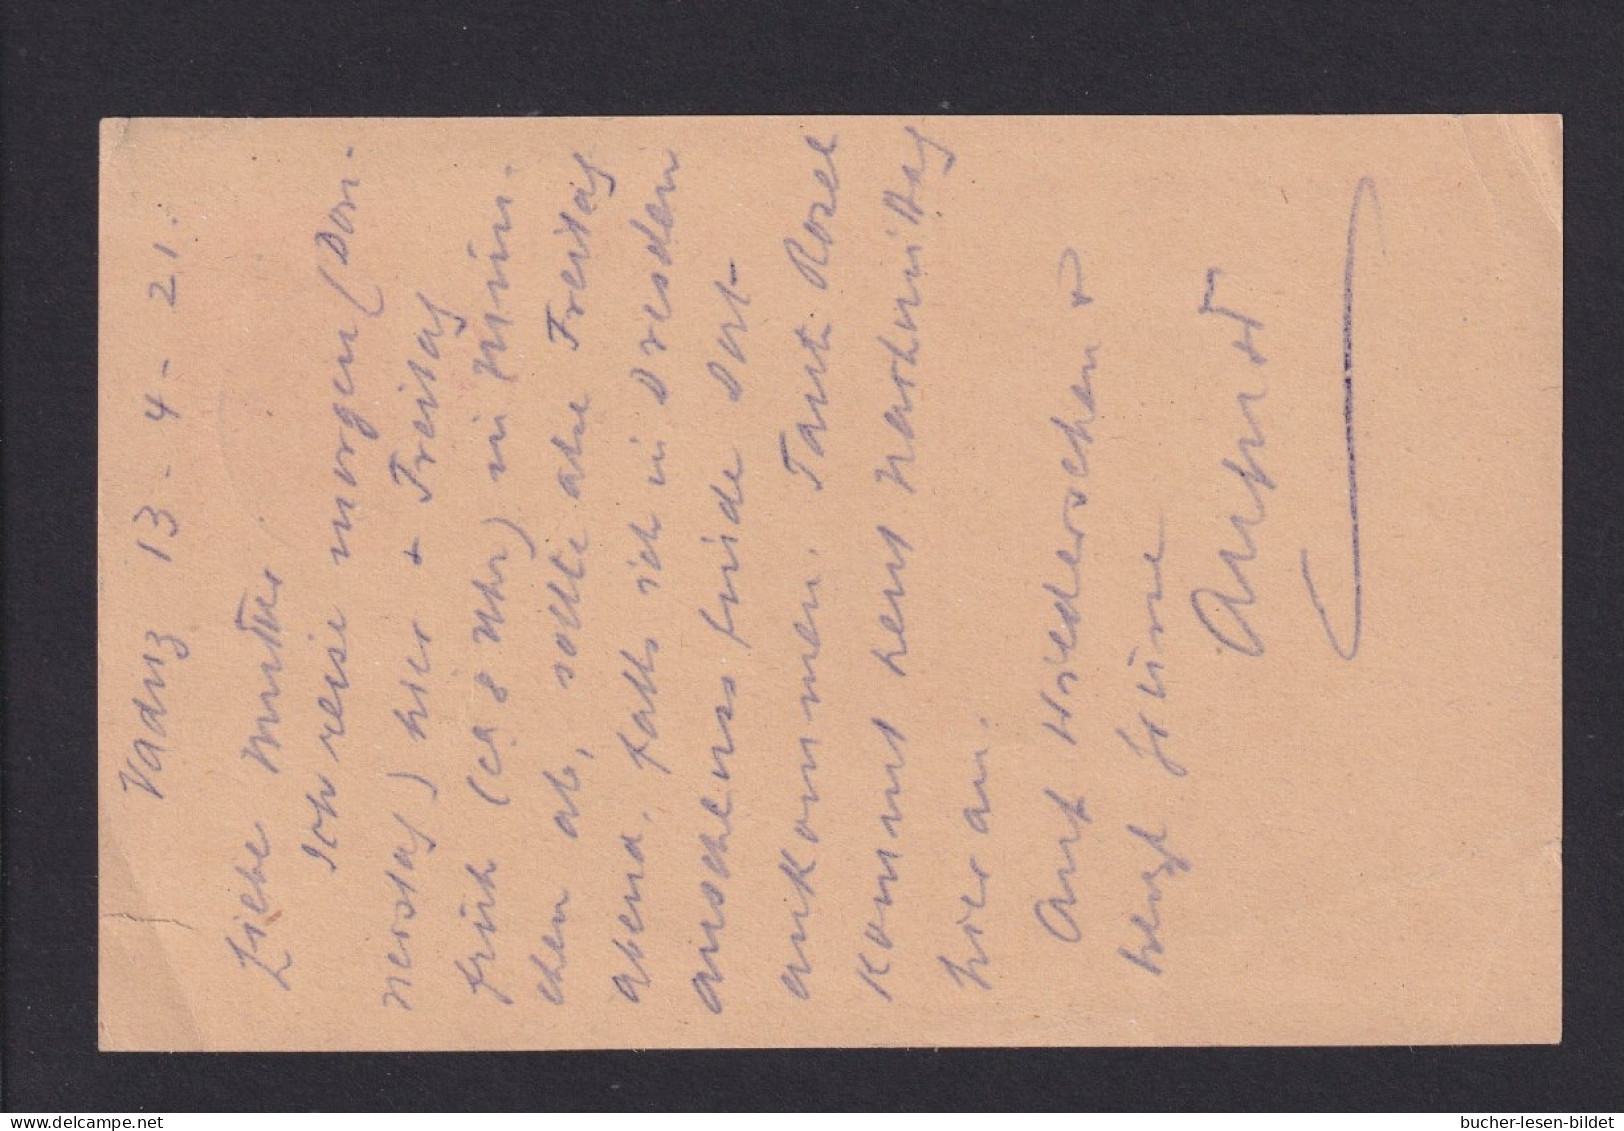 Vaduz 13-4-21.
Liebe Mutter
Ich reise morgen (Don-
nerstag) hier + Freitag
früh (ca 8 Uhr) in Mün-
chen ab, sollte also Freitag
abend, falls ich in Dresden
Anschluss finde dort
ankommen. Tante Rosel
kommt heut Nachmittag
hier an.
Auf Wiedersehen &
herzl Grüsse
bucher-lesen-bildet